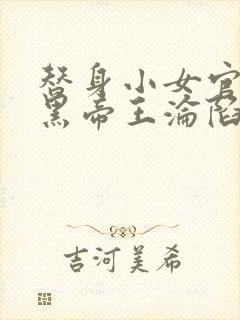 替身小女官
黑帝王淪陷
吉河美希